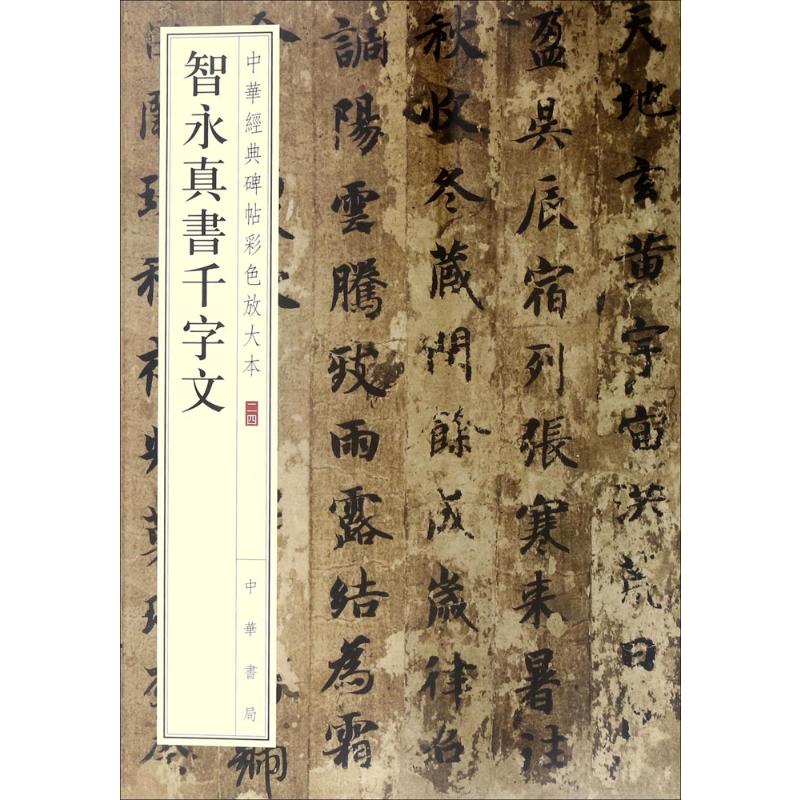 天地玄黄宇宙洪荒日
盈昃辰宿列張寒来暑往
秋收冬藏閏餘成歲律召
調陽雲騰致雨露結為霜
中華經典碑帖彩色放大本
二四
中華書局
智永真書千字文